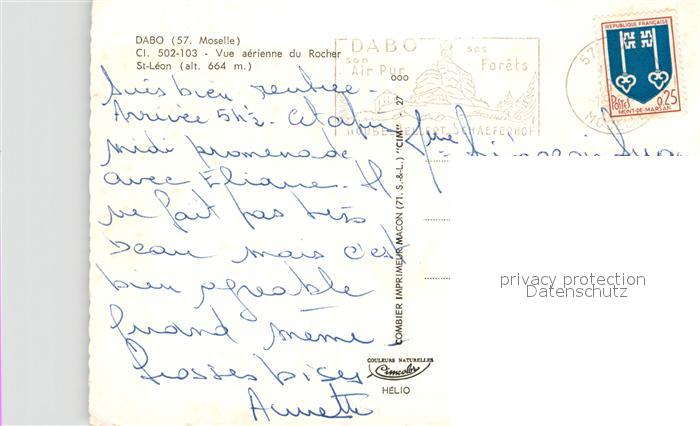 DABO (57. Moselle)
Cl. 502-103 - Vue aérienne du Rocher
St-Léon (alt. 664 m.)
DABO
son
Air Pur
ses
Forêts
REPUBLIQUE FRANÇAISE
POSTES 0,25
MONT-DE-MARSAN
57
SCHAEFERHOF
Suis bien rentrée -
Arrivée 5h½.
midi promenade
avec Éliane. Il
ne fait pas très
beau mais c'est
bien agréable
quand même -
Grosses bises
Annette
COMBIER IMPRIMEUR MACON (71. S.-&-L.) "CIM"
27
000
COULEURS NATURELLES
Cimcolor
HÉLIO
privacy protection
Datenschutz